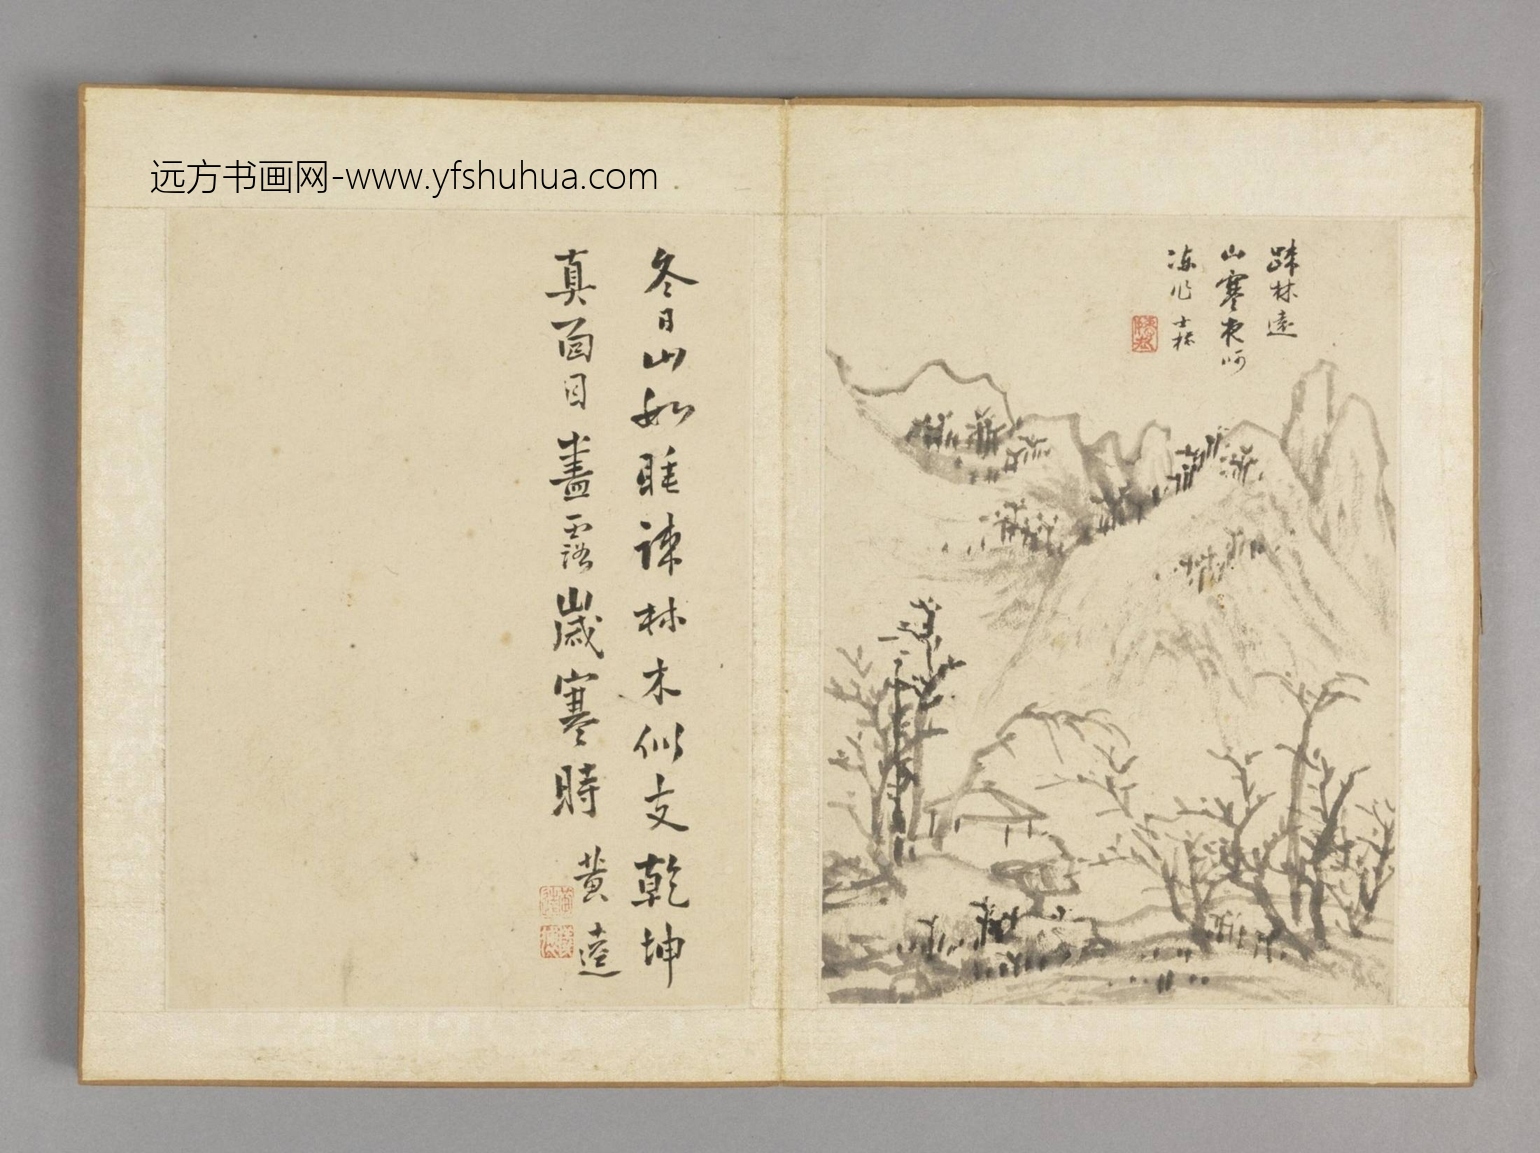 远方书画网-www.yfshuhua.com
疎林遠
山寒夜呵
冻作 士标
冬日山如睡疎林木似支乾坤
真面目盡露歲寒時
黄逵